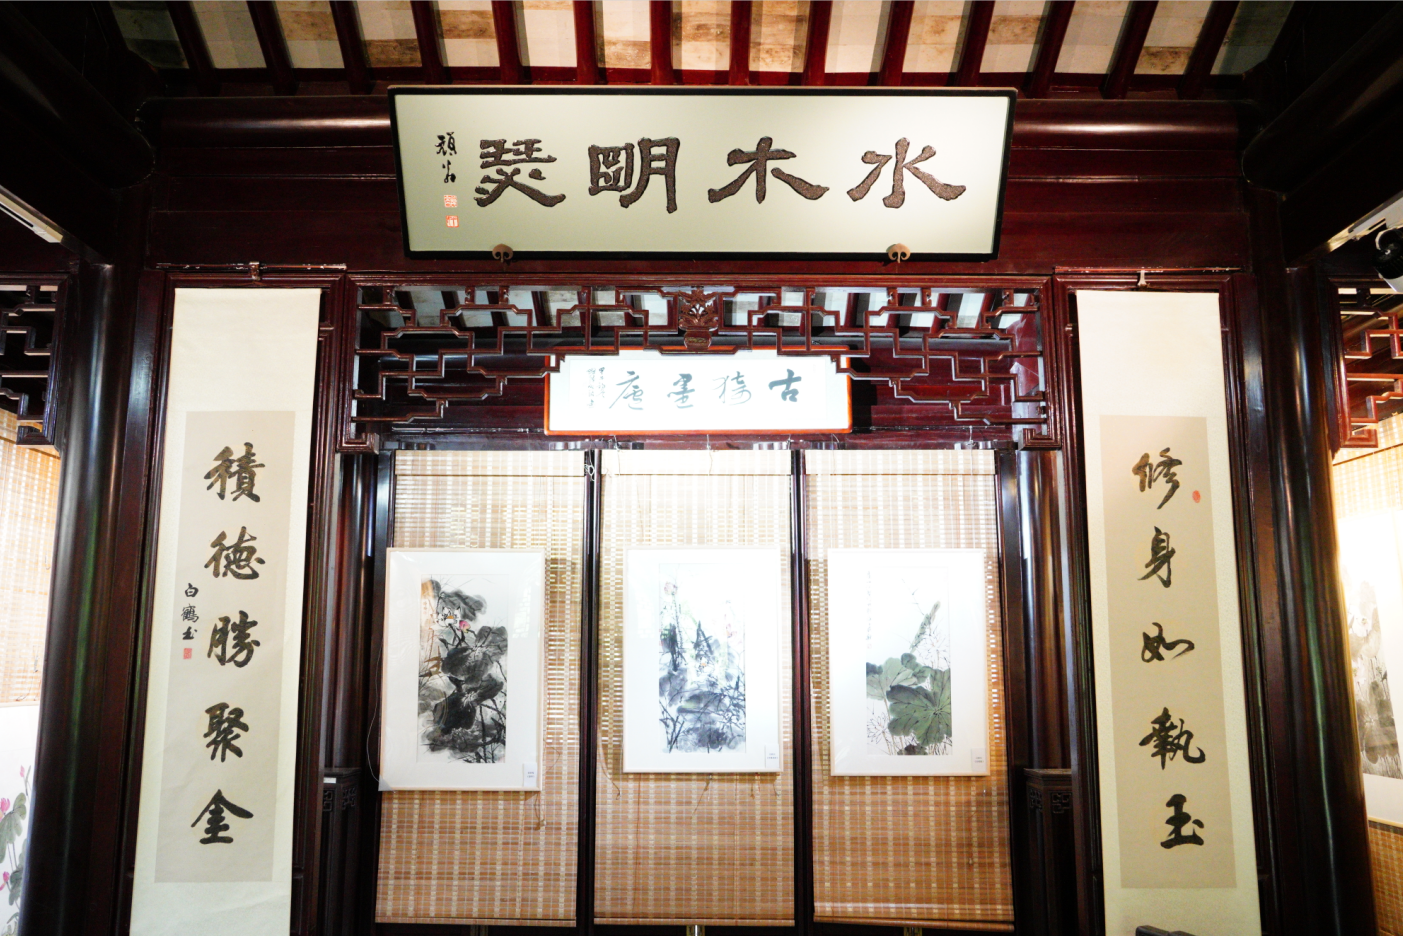 水木明瑟
古猗墨庵
修身如執玉
積德勝聚金
白鶴玉